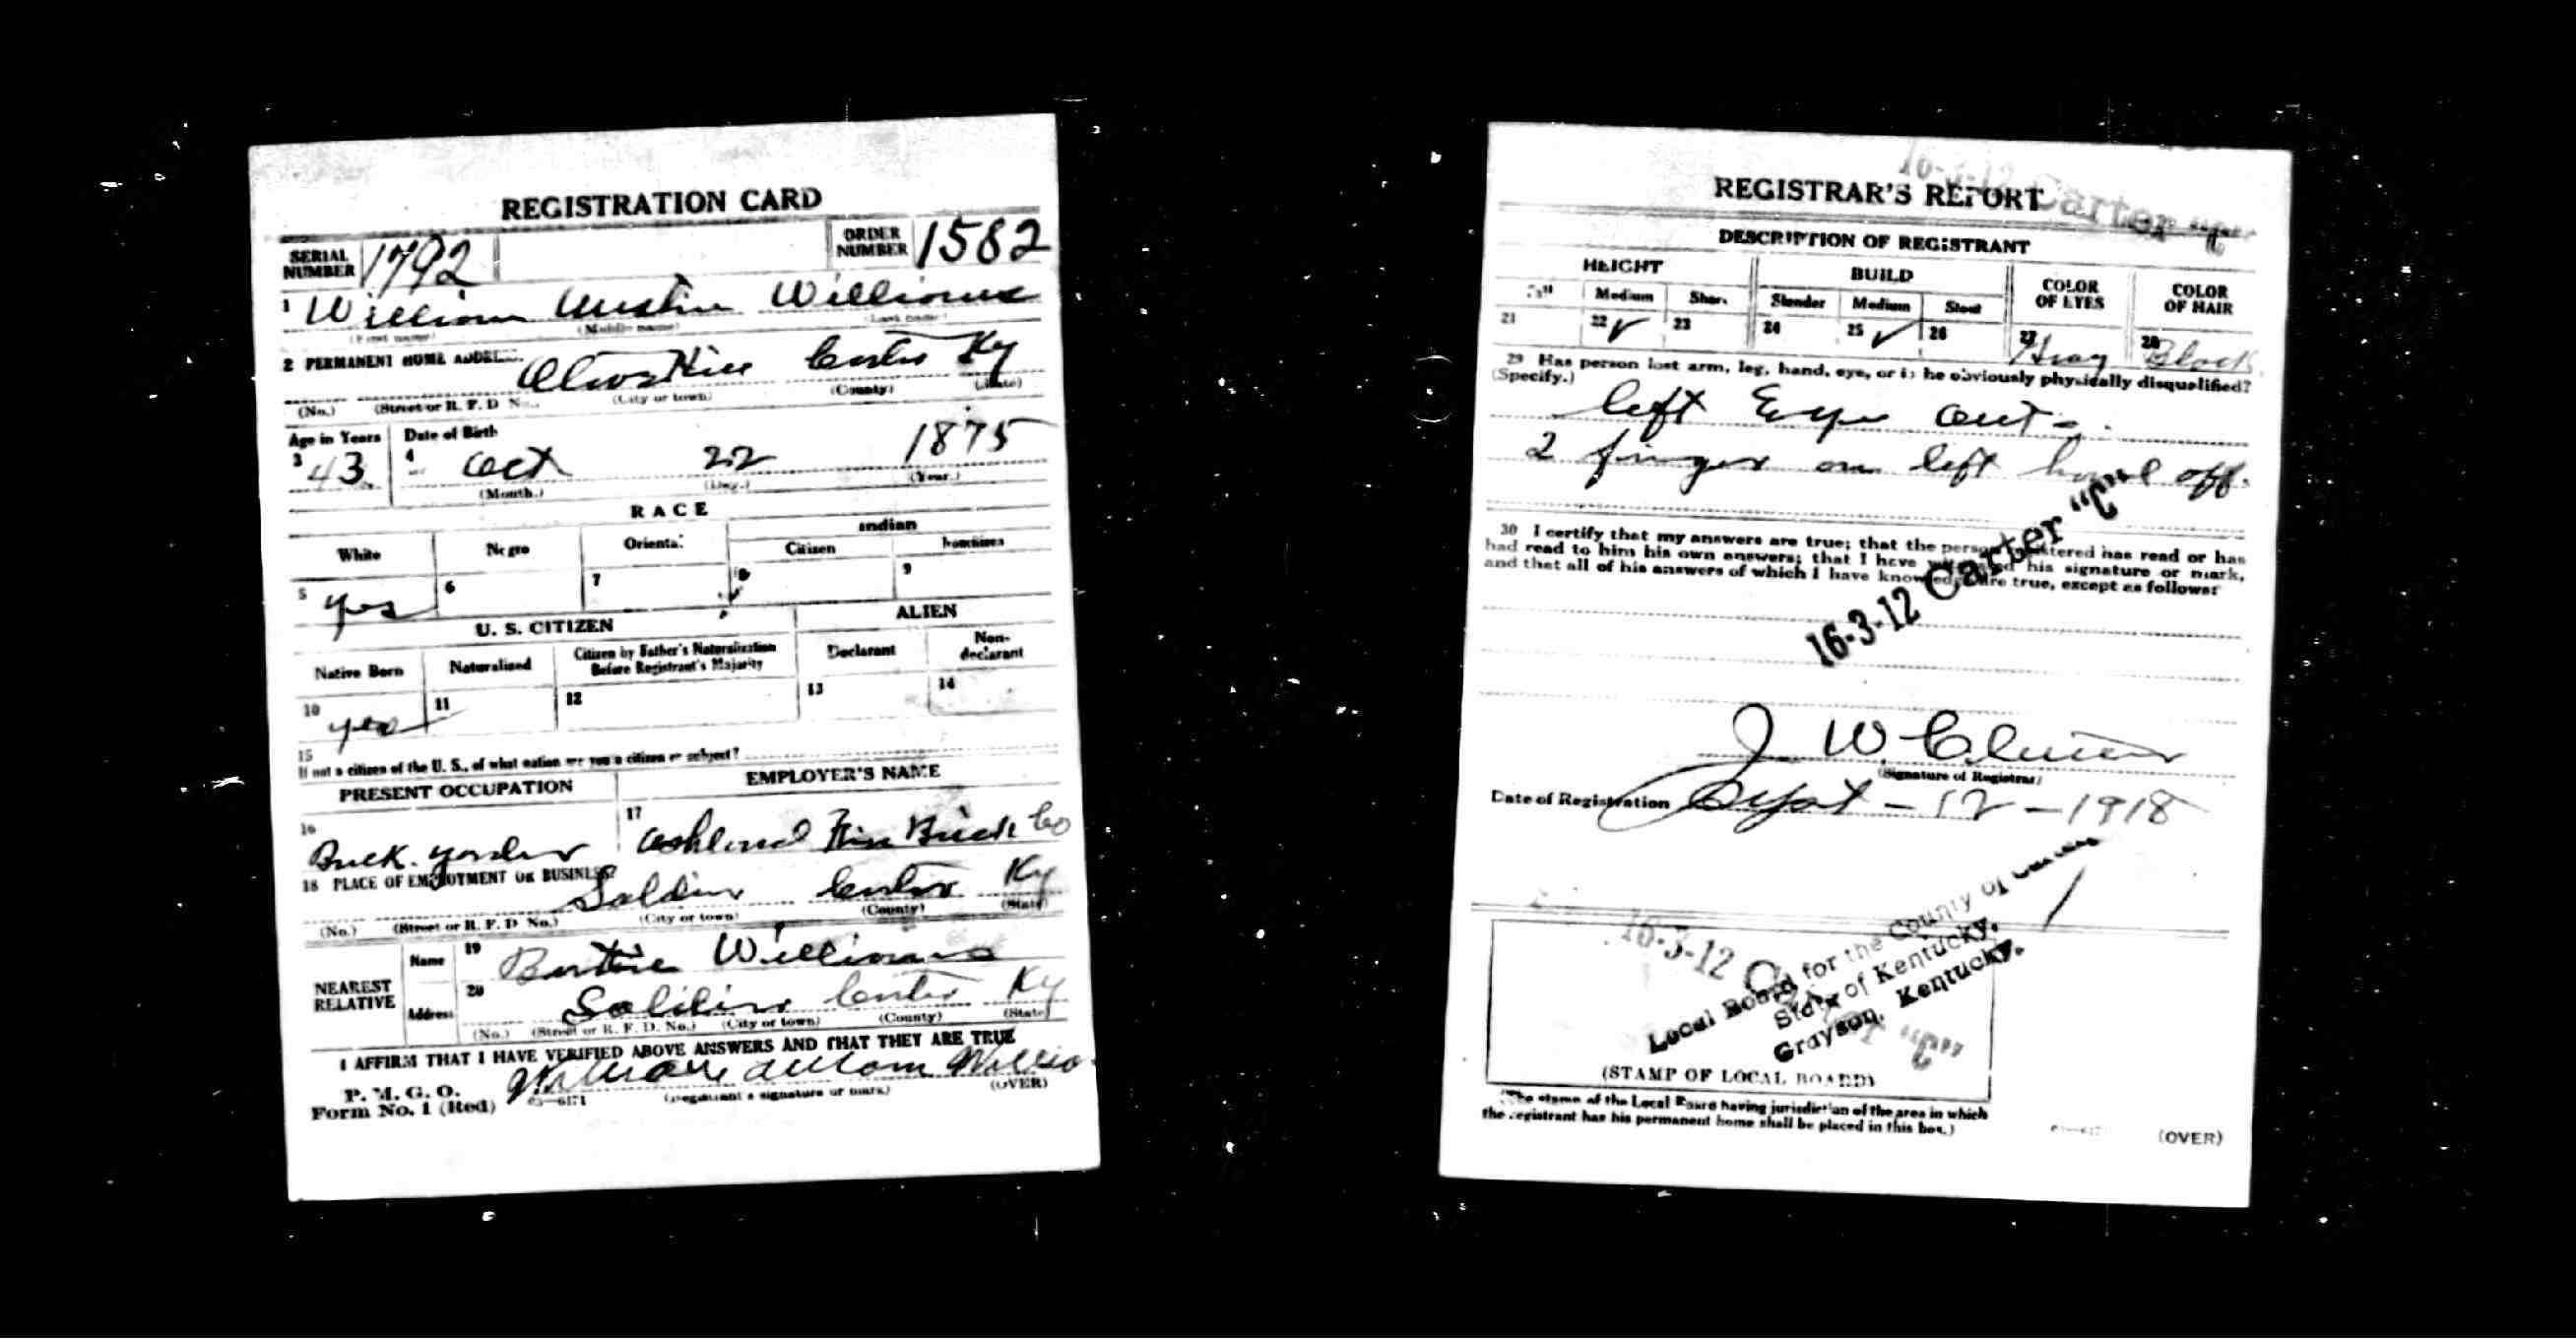 REGISTRATION CARD
SERIAL NUMBER 1792 ORDER NUMBER 1582
1 William Austin Williams
(First name) (Middle name) (Last name)
2 PERMANENT HOME ADDRESS
Olive Hill Carter Ky
(No.) (Street or R. F. D. No.) (City or town) (County) (State)
Age in Years Date of Birth
3 43 4 Oct 22 1875
(Month.) (Day.) (Year.)
RACE
White Negro Oriental Indian
Citizen Noncitizen
5 yes 6 7 8 9
U. S. CITIZEN ALIEN
Native Born Naturalized Citizen by Father's Naturalization Before Registrant's Majority Declarant Non-declarant
10 yes 11 12 13 14
15
If not a citizen of the U. S., of what nation are you a citizen or subject?
PRESENT OCCUPATION EMPLOYER'S NAME
16 Brick yarder 17 Ashland Fire Brick Co
18 PLACE OF EMPLOYMENT OR BUSINESS
Soldier Carter Ky
(No.) (Street or R. F. D. No.) (City or town) (County) (State)
NEAREST RELATIVE
Name 19 Williams
Address 20 Soldier Carter Ky
(No.) (Street or R. F. D. No.) (City or town) (County) (State)
I AFFIRM THAT I HAVE VERIFIED ABOVE ANSWERS AND THAT THEY ARE TRUE
P. M. G. O.
Form No. 1 (Red) 03—6171 (Registrant's signature or mark) (OVER)
16-3-12 Carter "C"
REGISTRAR'S REPORT
DESCRIPTION OF REGISTRANT
HEIGHT BUILD COLOR OF EYES COLOR OF HAIR
Tall Medium Short Slender Medium Stout
21 22 ✓ 23 24 25 ✓ 26 27 Gray 28 Black
29 Has person lost arm, leg, hand, eye, or is he obviously physically disqualified?
(Specify.)
left Eye out -
2 finger on left hand off.
30 I certify that my answers are true; that the person registered has read or has
had read to him his own answers; that I have witnessed his signature or mark,
and that all of his answers of which I have knowledge are true, except as follows:
16-3-12 Carter "C"
J W
(Signature of Registrar)
Date of Registration Sept - 12 - 1918
16-3-12 Carter "C"
Local Board for the County of Carter
State of Kentucky,
Grayson, Kentucky.
(STAMP OF LOCAL BOARD)
(The stamp of the Local Board having jurisdiction of the area in which
the registrant has his permanent home shall be placed in this box.)
(OVER)